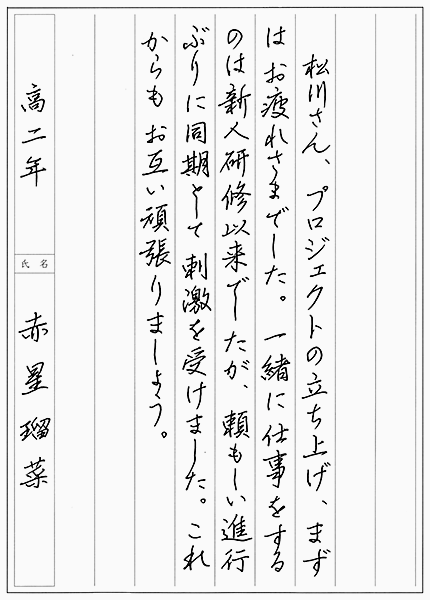 松川さん、プロジェクトの立ち上げ、まず
はお疲れさまでした。一緒に仕事をする
のは新人研修以来でしたが、頼もしい進行
ぶりに同期として刺激を受けました。これ
からもお互い頑張りましょう。
高二年
氏名
赤星瑠菜